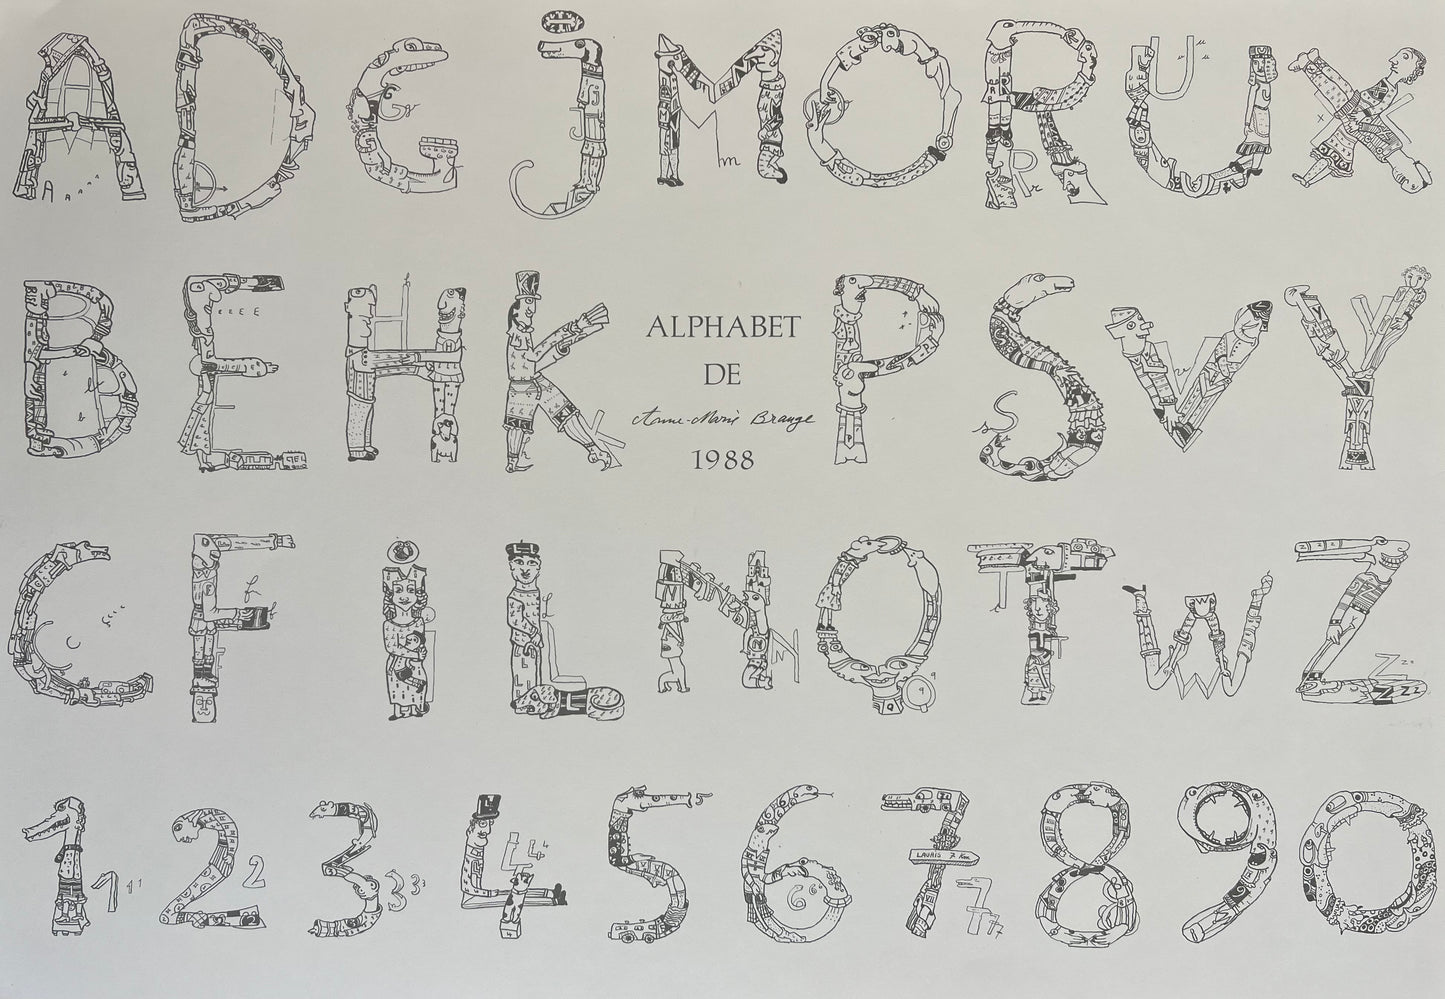 A D G J M O R U X
B E H K P S V Y
ALPHABET
DE
Anne-Marie Brauge
1988
C F I L N Q T W Z
1 2 3 4 5 6 7 8 9 0
LAURIS 7 Km